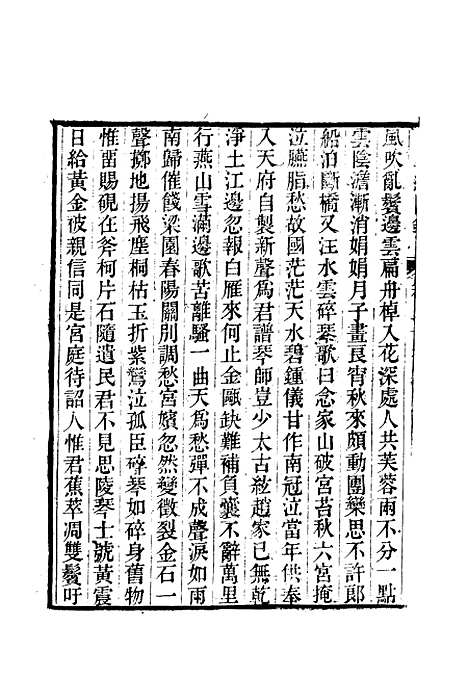 風吹亂鬢邊雲扁舟棹入花深處人共芙蓉雨不分一點
雲陰澹漸消娟娟月子畫良宵秋來頗動團欒思不許郎
船泊斷橋又汪水雲碎琴歌曰念家山破宮苔秋六宮掩
泣臙脂愁故國茫茫天水碧鍾儀甘作南冠泣當年供奉
入天府自製新聲爲君譜琴師豈少太古絃趙家已無乾
淨土江邊忽報白雁來何止金甌缺難補負囊不辭萬里
行燕山雪滿邊歌苦離騷一曲天爲愁彈不成聲淚如雨
南歸催餞梁園春陽關別調愁宮嬪忽然變徵裂金石一
聲擲地揚飛塵桐枯玉折紫鸞泣孤臣碎琴如碎身舊物
惟留賜硯在斧柯片石隨遺民君不見思陵琴士號黃震
日給黃金被親信同是宮庭待詔人惟君蕉萃凋雙鬢吁